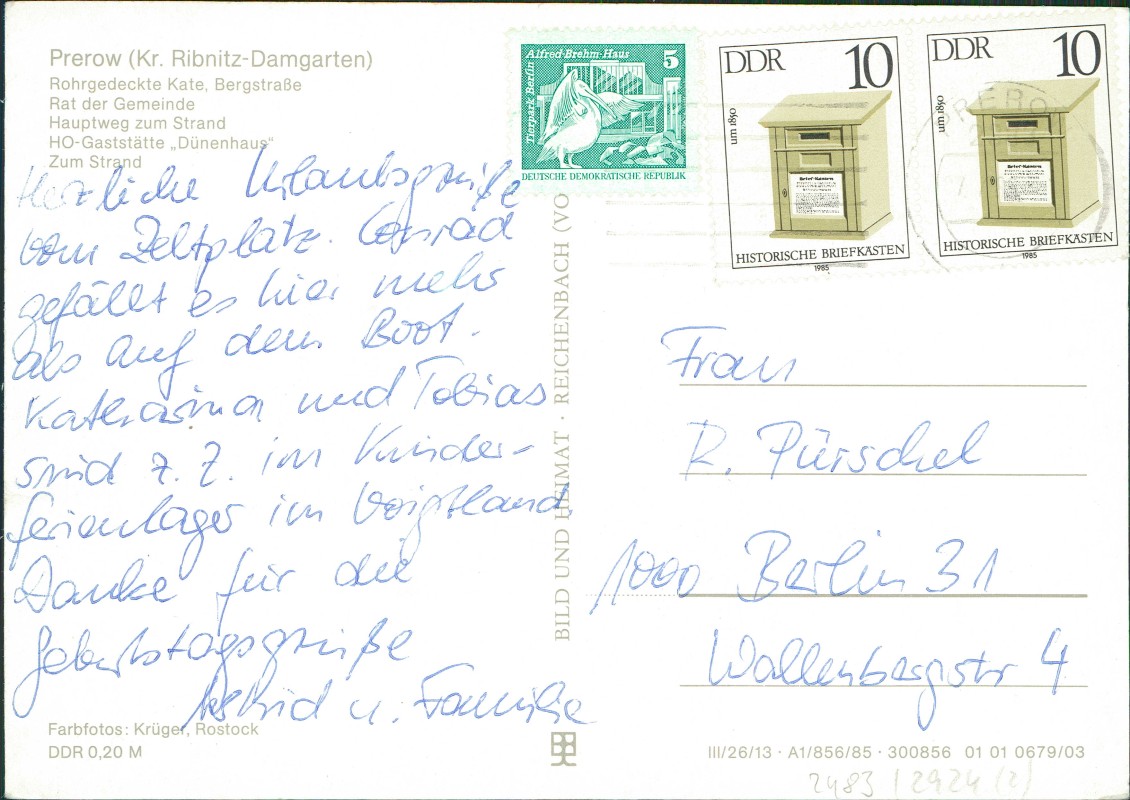 Prerow (Kr. Ribnitz-Damgarten)
Rohrgedeckte Kate, Bergstraße
Rat der Gemeinde
Hauptweg zum Strand
HO-Gaststätte „Dünenhaus“
Zum Strand
Herzliche Urlaubsgrüße
vom Zeltplatz. Conrad
gefällt es hier mehr
als auf dem Boot.
Katharina und Tobias
sind z. Z. im Kinder-
ferienlager im Voigtland
Danke für die
Geburtstagsgrüße
Astrid u. Familie
Farbfotos: Krüger, Rostock
DDR 0,20 M
BILD UND HEIMAT · REICHENBACH (VO
Alfred-Brehm-Haus
Tierpark Berlin
5
DEUTSCHE DEMOKRATISCHE REPUBLIK
DDR 10
um 1850
Brief-Kasten
HISTORISCHE BRIEFKÄSTEN
1985
DDR 10
um 1850
Brief-Kasten
HISTORISCHE BRIEFKÄSTEN
1985
PRERO
Frau
R. Pürschel
1000 Berlin 31
Wallenbergstr 4
III/26/13 · A1/856/85 · 300856 01 01 0679/03
2483 / 2924 (2)